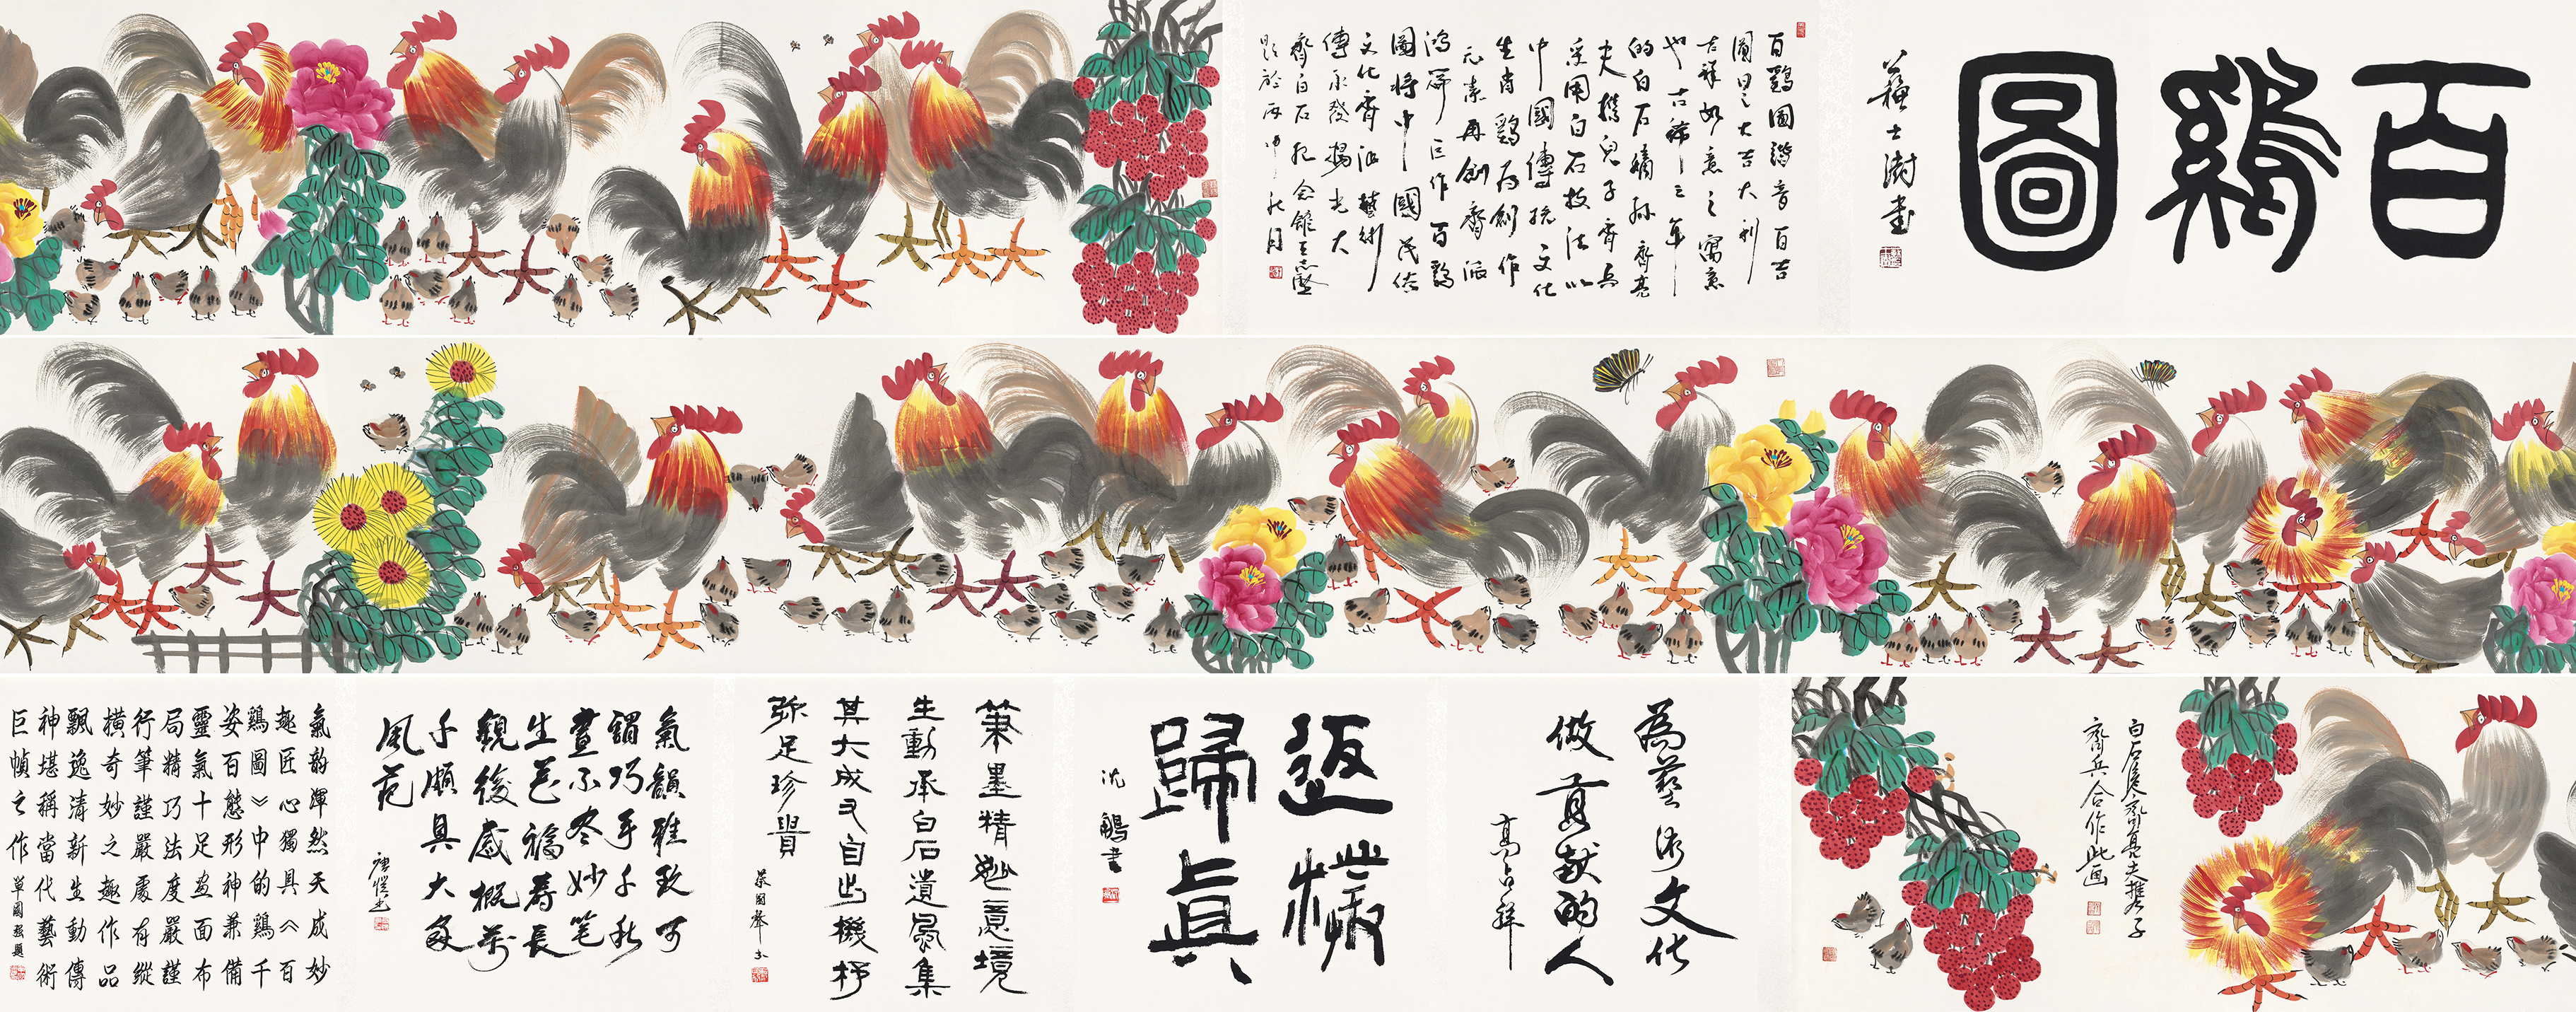 百鷄圖
蘇士澍書
百鷄圖諧音百吉
圖呈大吉大利
吉祥如意之寓意
也古稀之年
的白石嫡孫齊亮
夫攜兒子齊兵
采用白石技法以
中國傳統文化
生肖鷄為創作
元素再創齊派
鴻篇巨作百鷄
圖將中國民俗
文化齊派藝術
傳承發揚光大
齊白石紀念館王志堅
題於丙申秋月
白石後人齊亮夫攜子
齊兵合作此畫
為藝術文化
做貢獻的人
高占祥
返樸
歸真
沈鵬書
筆墨精妙意境
生動承白石遺風集
其大成又自出機杼
弥足珍貴
榮國聲書
氣韻雅致可
謂巧手千秋
畫不盡妙筆
生花福壽長
觀後感概萬
千頗具大家
風范
唐愷書
氣韵渾然天成妙
趣匠心獨具《百
鷄圖》中的鷄千
姿百態形神兼備
靈氣十足畫面布
局精巧法度嚴謹
行筆謹嚴處有縱
橫奇妙之趣作品
飄逸清新生動傳
神堪稱當代藝術
巨幀之作
單國強題